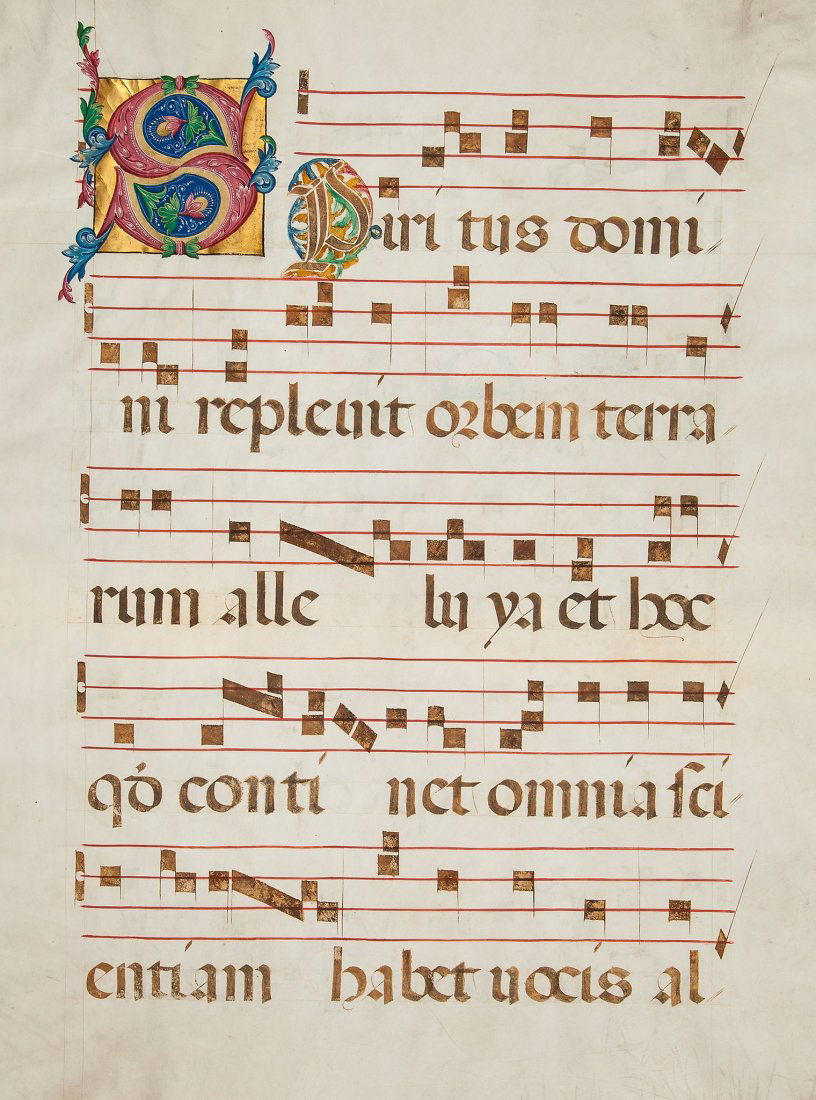 SPiri tus domi
ni repleuit orbem terra
rum alle lu ya et hoc
qđ conti net omnia sci
entiam habet uocis al